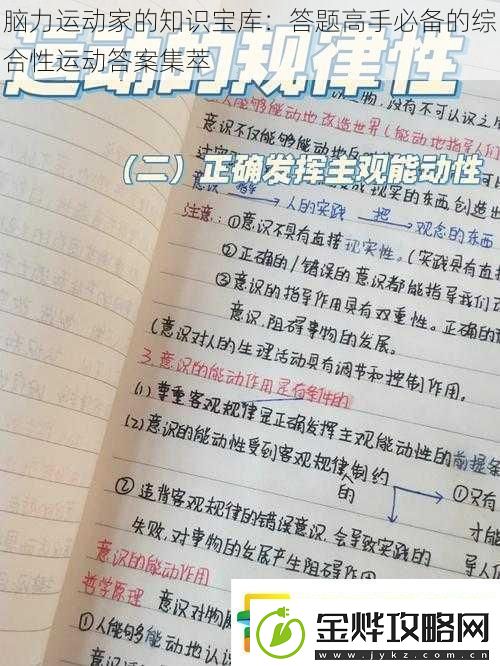 脑力运动家的知识宝库：答题高手必备的综
合性运动答案集萃
运动的规律性
人能够能动地改造世界（能动地指导人们
意识不仅能够能动地
（二）正确发挥主观能动性
现实的东西创造出
人的实践 把 观念的东西
注意：①意识不具有直接现实性。（实践具有直
②正确的/错误的意识都能指导我们
③意识的指导作用具有双重性。正确的
意识，阻碍事物的发展。
（意识对人的生理活动具有调节和控制作用。
3.意识的能动作用是有条件的
(1)尊重客观规律是正确发挥主观能动性的前提条
(2)意识的能动性受到客观规律制约
人的
①只有
才能
导人们
②违背客观规律的错误意识，会导致实践的
失败，对事物的发展产生阻碍作用
意识的能动作用
哲学原理 意识对物质
①人能够能动地认识
金烨攻略网
www.jykz.com.cn